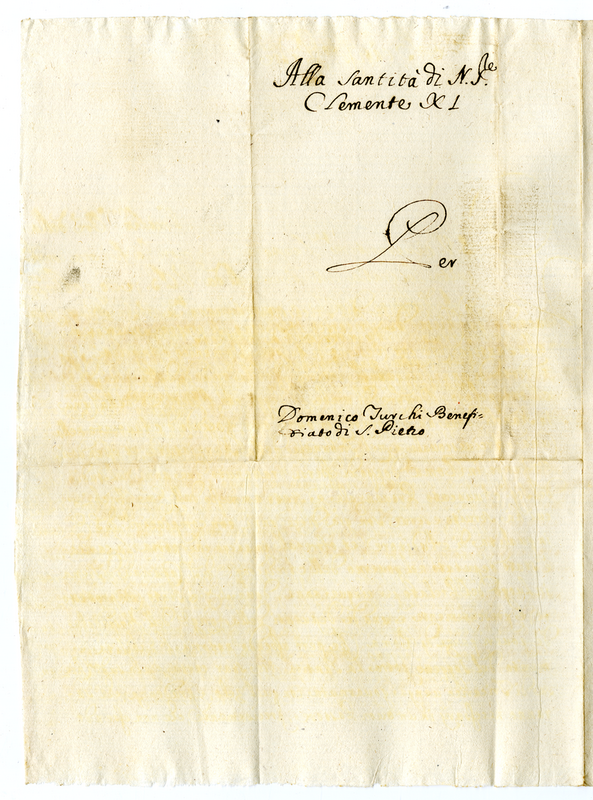 Alla Santità di N. S.re
Clemente XI
Per
Domenico Turchi Benefi=
ziato di S. Pietro